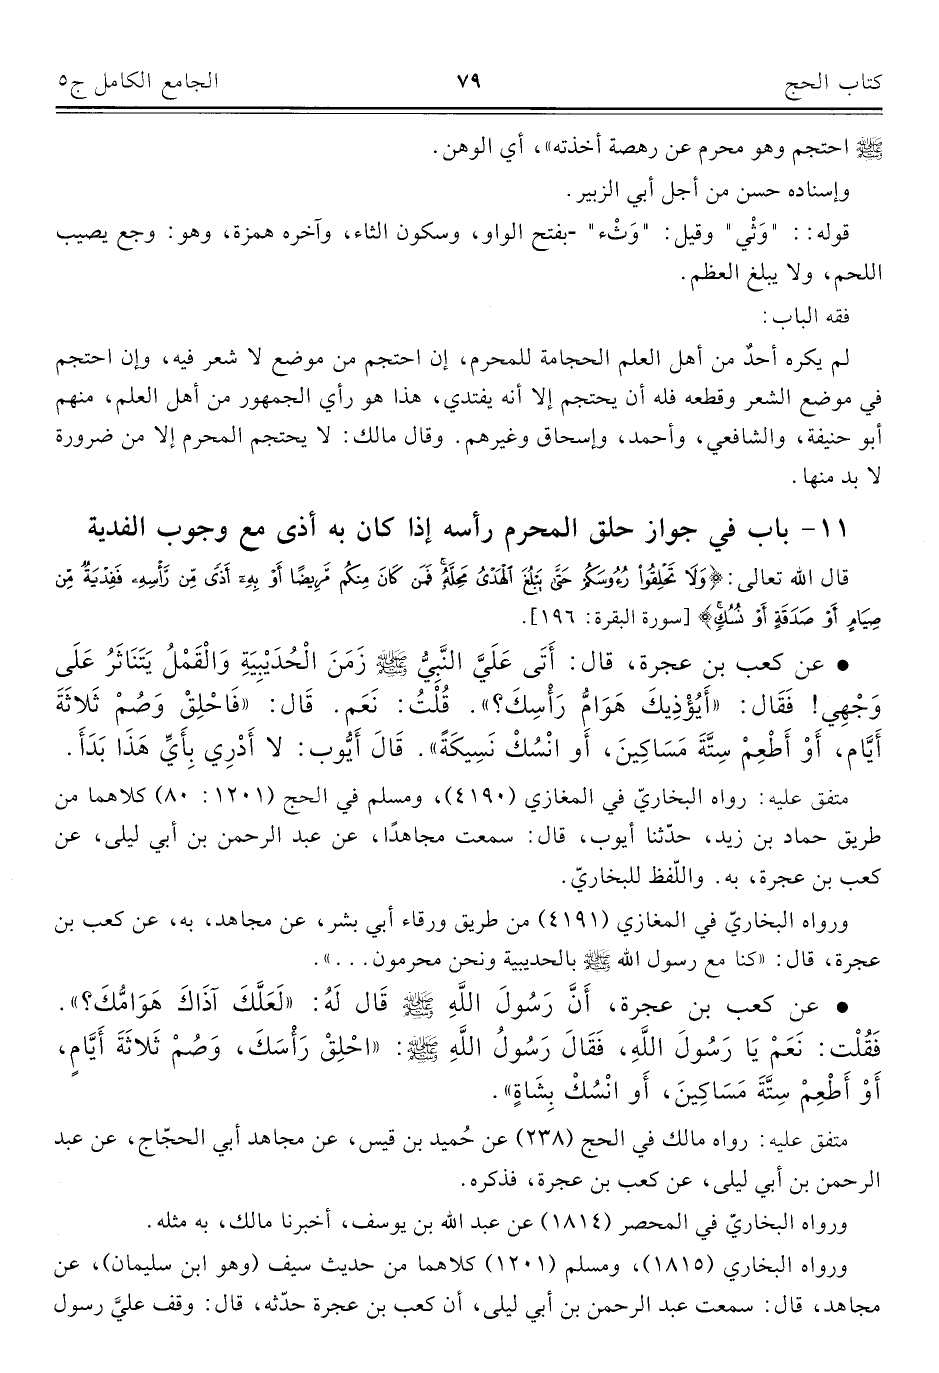 كتاب الحج ٧٩ الجامع الكامل ج٥
ﷺ احتجم وهو محرم عن رهصة أخذته»، أي الوهن.
وإسناده حسن من أجل أبي الزبير.
قوله: : "وَثْي" وقيل: "وَثْء" -بفتح الواو، وسكون الثاء، وآخره همزة، وهو: وجع يصيب
اللحم، ولا يبلغ العظم.
فقه الباب:
لم يكره أحدٌ من أهل العلم الحجامة للمحرم، إن احتجم من موضع لا شعر فيه، وإن احتجم
في موضع الشعر وقطعه فله أن يحتجم إلا أنه يفتدي، هذا هو رأي الجمهور من أهل العلم، منهم
أبو حنيفة، والشافعي، وأحمد، وإسحاق وغيرهم. وقال مالك: لا يحتجم المحرم إلا من ضرورة
لا بد منها.
١١- باب في جواز حلق المحرم رأسه إذا كان به أذى مع وجوب الفدية
قال الله تعالى: ﴿وَلَا تَحْلِقُوا۟ رُءُوسَكُمْ حَتَّىٰ يَبْلُغَ ٱلْهَدْىُ مَحِلَّهُۥۚ فَمَن كَانَ مِنكُم مَّرِيضًا أَوْ بِهِۦٓ أَذًى مِّن رَّأْسِهِۦ فَفِدْيَةٌ مِّن
صِيَامٍ أَوْ صَدَقَةٍ أَوْ نُسُكٍۚ﴾ [سورة البقرة: ١٩٦].
• عن كعب بن عجرة، قال: أَتَى عَلَيَّ النَّبِيُّ ﷺ زَمَنَ الْحُدَيْبِيَةِ وَالْقَمْلُ يَتَنَاثَرُ عَلَى
وَجْهِي! فَقَالَ: «أَيُؤْذِيكَ هَوَامُّ رَأْسِكَ؟». قُلْتُ: نَعَم. قَالَ: «فَاحْلِقْ وَصُمْ ثَلاثَةَ
أَيَّام، أَوْ أَطْعِمْ سِتَّةَ مَسَاكِينَ، أَو انْسُكْ نَسِيكَةً». قَالَ أَيُّوب: لا أَدْرِي بِأَيِّ هَذَا بَدَأَ.
متفق عليه: رواه البخاريّ في المغازي (٤١٩٠)، ومسلم في الحج (١٢٠١: ٨٠) كلاهما من
طريق حماد بن زيد، حدّثنا أيوب، قال: سمعت مجاهدًا، عن عبد الرحمن بن أبي ليلى، عن
كعب بن عجرة، به. واللّفظ للبخاريّ.
ورواه البخاريّ في المغازي (٤١٩١) من طريق ورقاء أبي بشر، عن مجاهد، به، عن كعب بن
عجرة، قال: «كنا مع رسول الله ﷺ بالحديبية ونحن محرمون...».
• عن كعب بن عجرة، أَنَّ رَسُولَ اللَّهِ ﷺ قَال لَهُ: «لَعَلَّكَ آذَاكَ هَوَامُّكَ؟».
فَقُلْت: نَعَمْ يَا رَسُولَ اللَّهِ، فَقَالَ رَسُولُ اللَّهِ ﷺ: «احْلِقْ رَأْسَكَ، وَصُمْ ثَلاثَةَ أَيَّامٍ،
أَوْ أَطْعِمْ سِتَّةَ مَسَاكِينَ، أَو انْسُكْ بِشَاةٍ».
متفق عليه: رواه مالك في الحج (٢٣٨) عن حُميد بن قيس، عن مجاهد أبي الحجّاج، عن عبد
الرحمن بن أبي ليلى، عن كعب بن عجرة، فذكره.
ورواه البخاريّ في المحصر (١٨١٤) عن عبد الله بن يوسف، أخبرنا مالك، به مثله.
ورواه البخاري (١٨١٥)، ومسلم (١٢٠١) كلاهما من حديث سيف (وهو ابن سليمان)، عن
مجاهد، قال: سمعت عبد الرحمن بن أبي ليلى، أن كعب بن عجرة حدّثه، قال: وقف عليَّ رسول